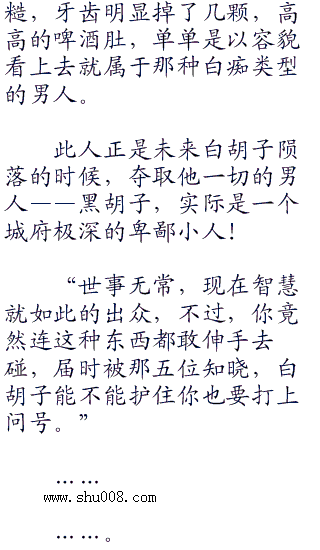 糙，牙齿明显掉了几颗，高
高的啤酒肚，单单是以容貌
看上去就属于那种白痴类型
的男人。
此人正是未来白胡子陨
落的时候，夺取他一切的男
人——黑胡子，实际是一个
城府极深的卑鄙小人！
“世事无常，现在智慧
就如此的出众，不过，你竟
然连这种东西都敢伸手去
碰，届时被那五位知晓，白
胡子能不能护住你也要打上
问号。”
……
www.shu008.com
……。